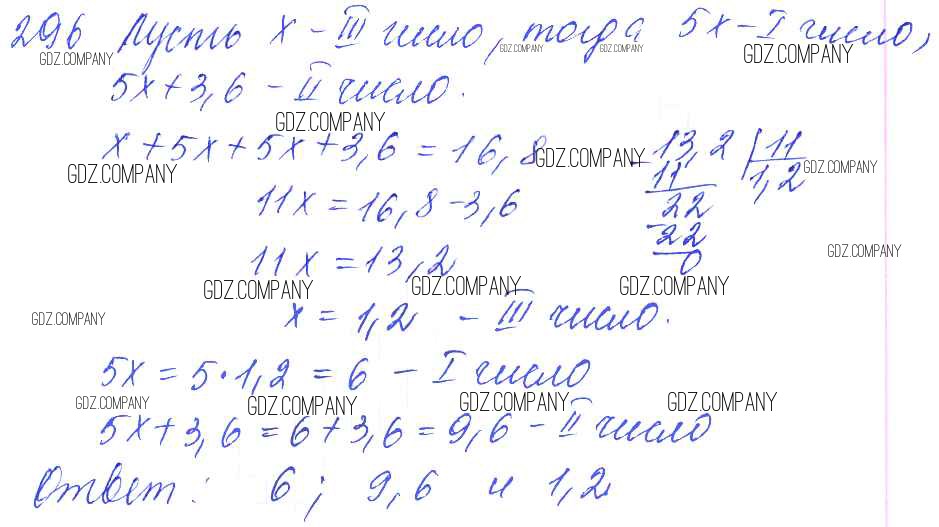 296 Пусть x - III число, тогда 5x - I число,
GDZ.COMPANY GDZ.COMPANY GDZ.COMPANY GDZ.COMPANY
5x + 3,6 - II число.
GDZ.COMPANY
x + 5x + 5x + 3,6 = 16,8
GDZ.COMPANY GDZ.COMPANY GDZ.COMPANY
- 13,2 | 11
11 1,2
22
- 22
0
11x = 16,8 - 3,6
GDZ.COMPANY
11x = 13,2
GDZ.COMPANY GDZ.COMPANY GDZ.COMPANY
GDZ.COMPANY
x = 1,2 - III число.
5x = 5 · 1,2 = 6 - I число
GDZ.COMPANY GDZ.COMPANY GDZ.COMPANY GDZ.COMPANY
5x + 3,6 = 6 + 3,6 = 9,6 - II число
Ответ: 6; 9,6 и 1,2